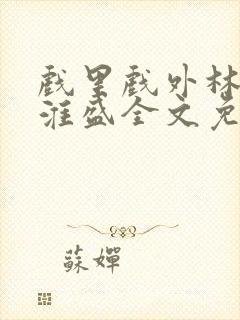 戲里戲外林
淮盛全文免
蘇嬋